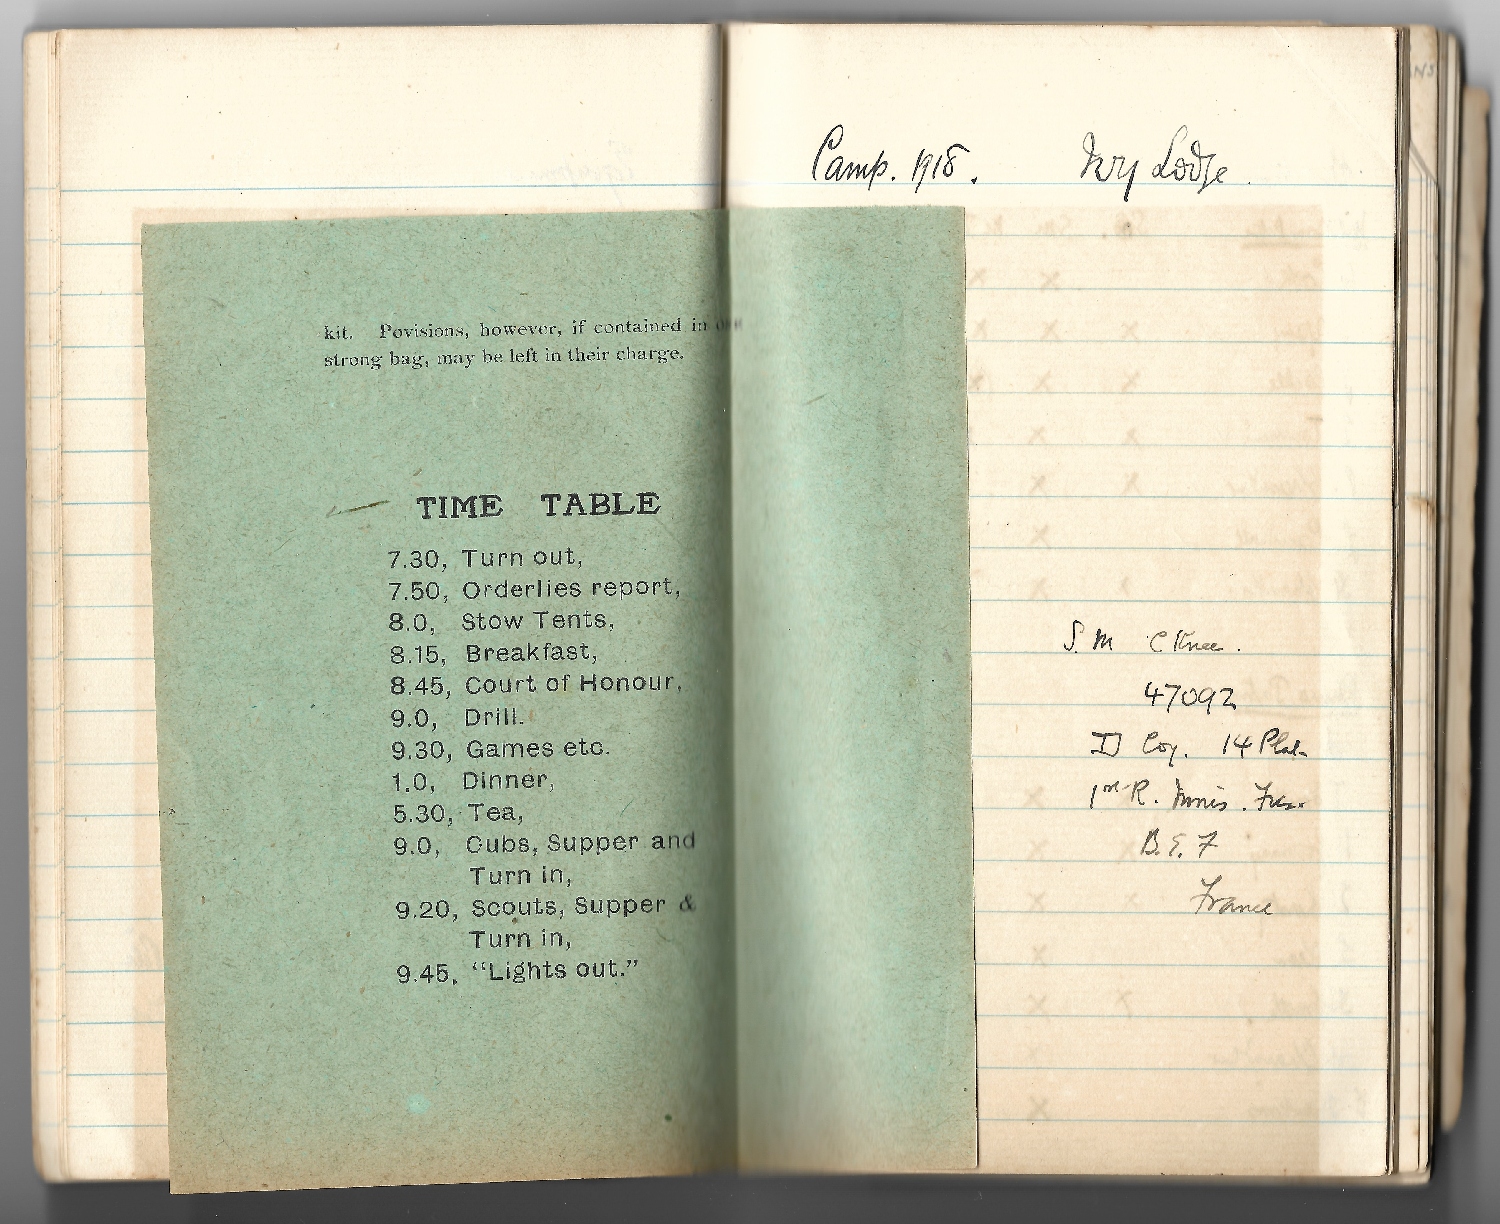 kit. Povisions, however, if contained in one
strong bag, may be left in their charge.
TIME TABLE
7.30, Turn out,
7.50, Orderlies report,
8.0, Stow Tents,
8.15, Breakfast,
8.45, Court of Honour,
9.0, Drill.
9.30, Games etc.
1.0, Dinner,
5.30, Tea,
9.0, Cubs, Supper and
Turn in,
9.20, Scouts, Supper &
Turn in,
9.45, “Lights out.”
Camp. 1918. Ivy Lodge.
S. M C Knee.
47092
D Coy. 14 Plat.
1st R. Innis. Fus.
B.E.F
France